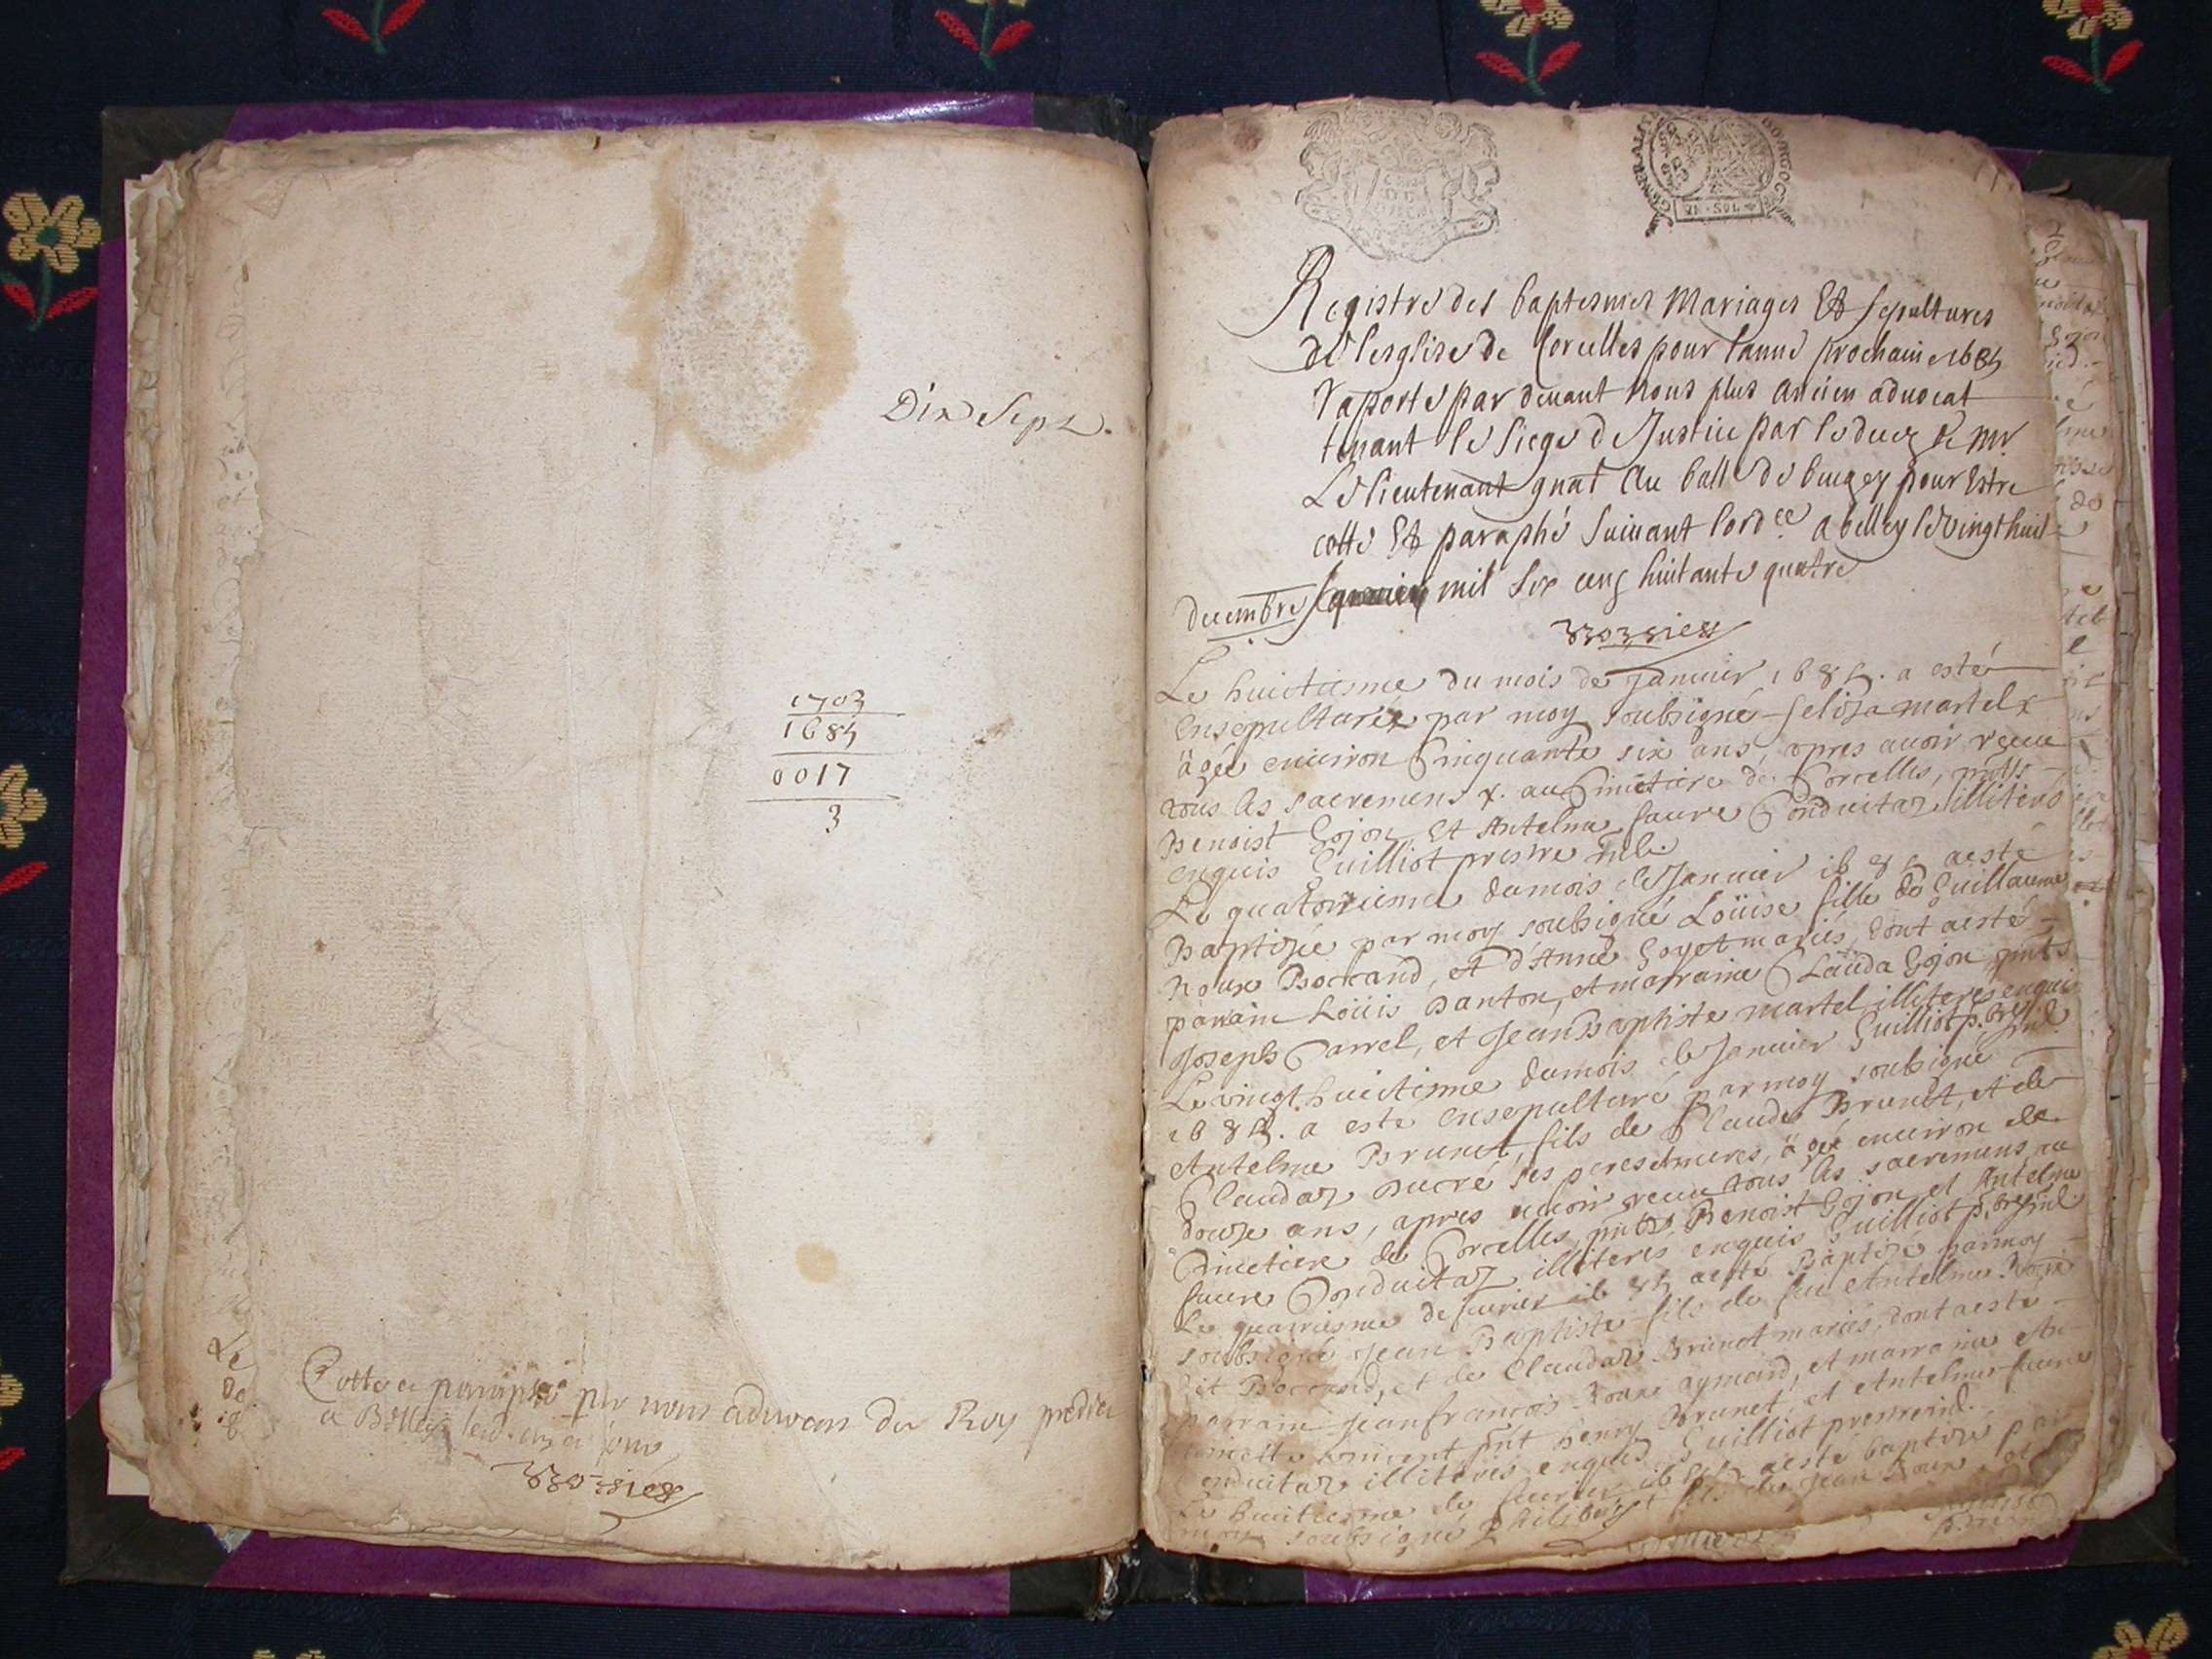 Dix Sept.
1703
1685
0017
3
Cotté et paraphé par nous advocat du Roy
a Belley
GENERALIT BOURGOG
VN · SOL
Registre des baptesmes Mariages Et sepultures
de lesglise de Corcelles pour lanné prochaine 1685
raporté par devant nous plus ancien advocat
tenant le siege de Justice par le decez de Mr
Le lieutenant gnal au ball de bugey pour Estre
cotté Et paraphé suivant lordce a belley le vingthuit
decembre mil six cens huitante quatre
Le huictiesme du mois de Janvier 1685. a esté
ensepulturée par moy soubsigné martel
ägée environ Cinquante six ans, apres avoir receu
tous les sacremens au Cimetiere de Corcelles, pnts
Benoist Gojon, Et Antelme favre Conduitaz illiteres
enquis Guilliot prestre
Le quatorzieme du mois de Janvier 1685 a esté
Baptizée par moy soubsigné Loüise fille de Guillaume
Roux Boccand, et d'Anne Goyet mariés, dont a esté
parrain Loüis Danton, et marraine Claüda Gojon pnts
Joseph Carrel, et Jean Baptiste martel illiteres enquis
Le vingt huictieme du mois de Janvier Guilliot
1685. a este ensepulturé par moy soubsigné
Antelme Brunet, fils de Claude Brunet, et de
Claudaz Ducré ses pere et meres, ägé environ de
douze ans, apres avoir receu tous les sacremens, au
Cimetiere de Corcelles, pnts Benoist Gojon et Antelme
favre Conduitaz illiteres enquis Guilliot
Le de fevrier 1685 a esté Baptizé par moy
soubsigné Jean Baptiste fils de feu Antelme
dit Boccand, et de Claudaz Brunet mariés, dont a esté
parrain Jean francois Roux aymard, et marraine An
vincent pnt henry Brunet, et Antelme favre
Conduitaz illiteres enquis Guilliot prestre
Le huictiesme de fevrier 1685 a esté baptizé par
moy soubsigné Philibert fils de Jean Roux